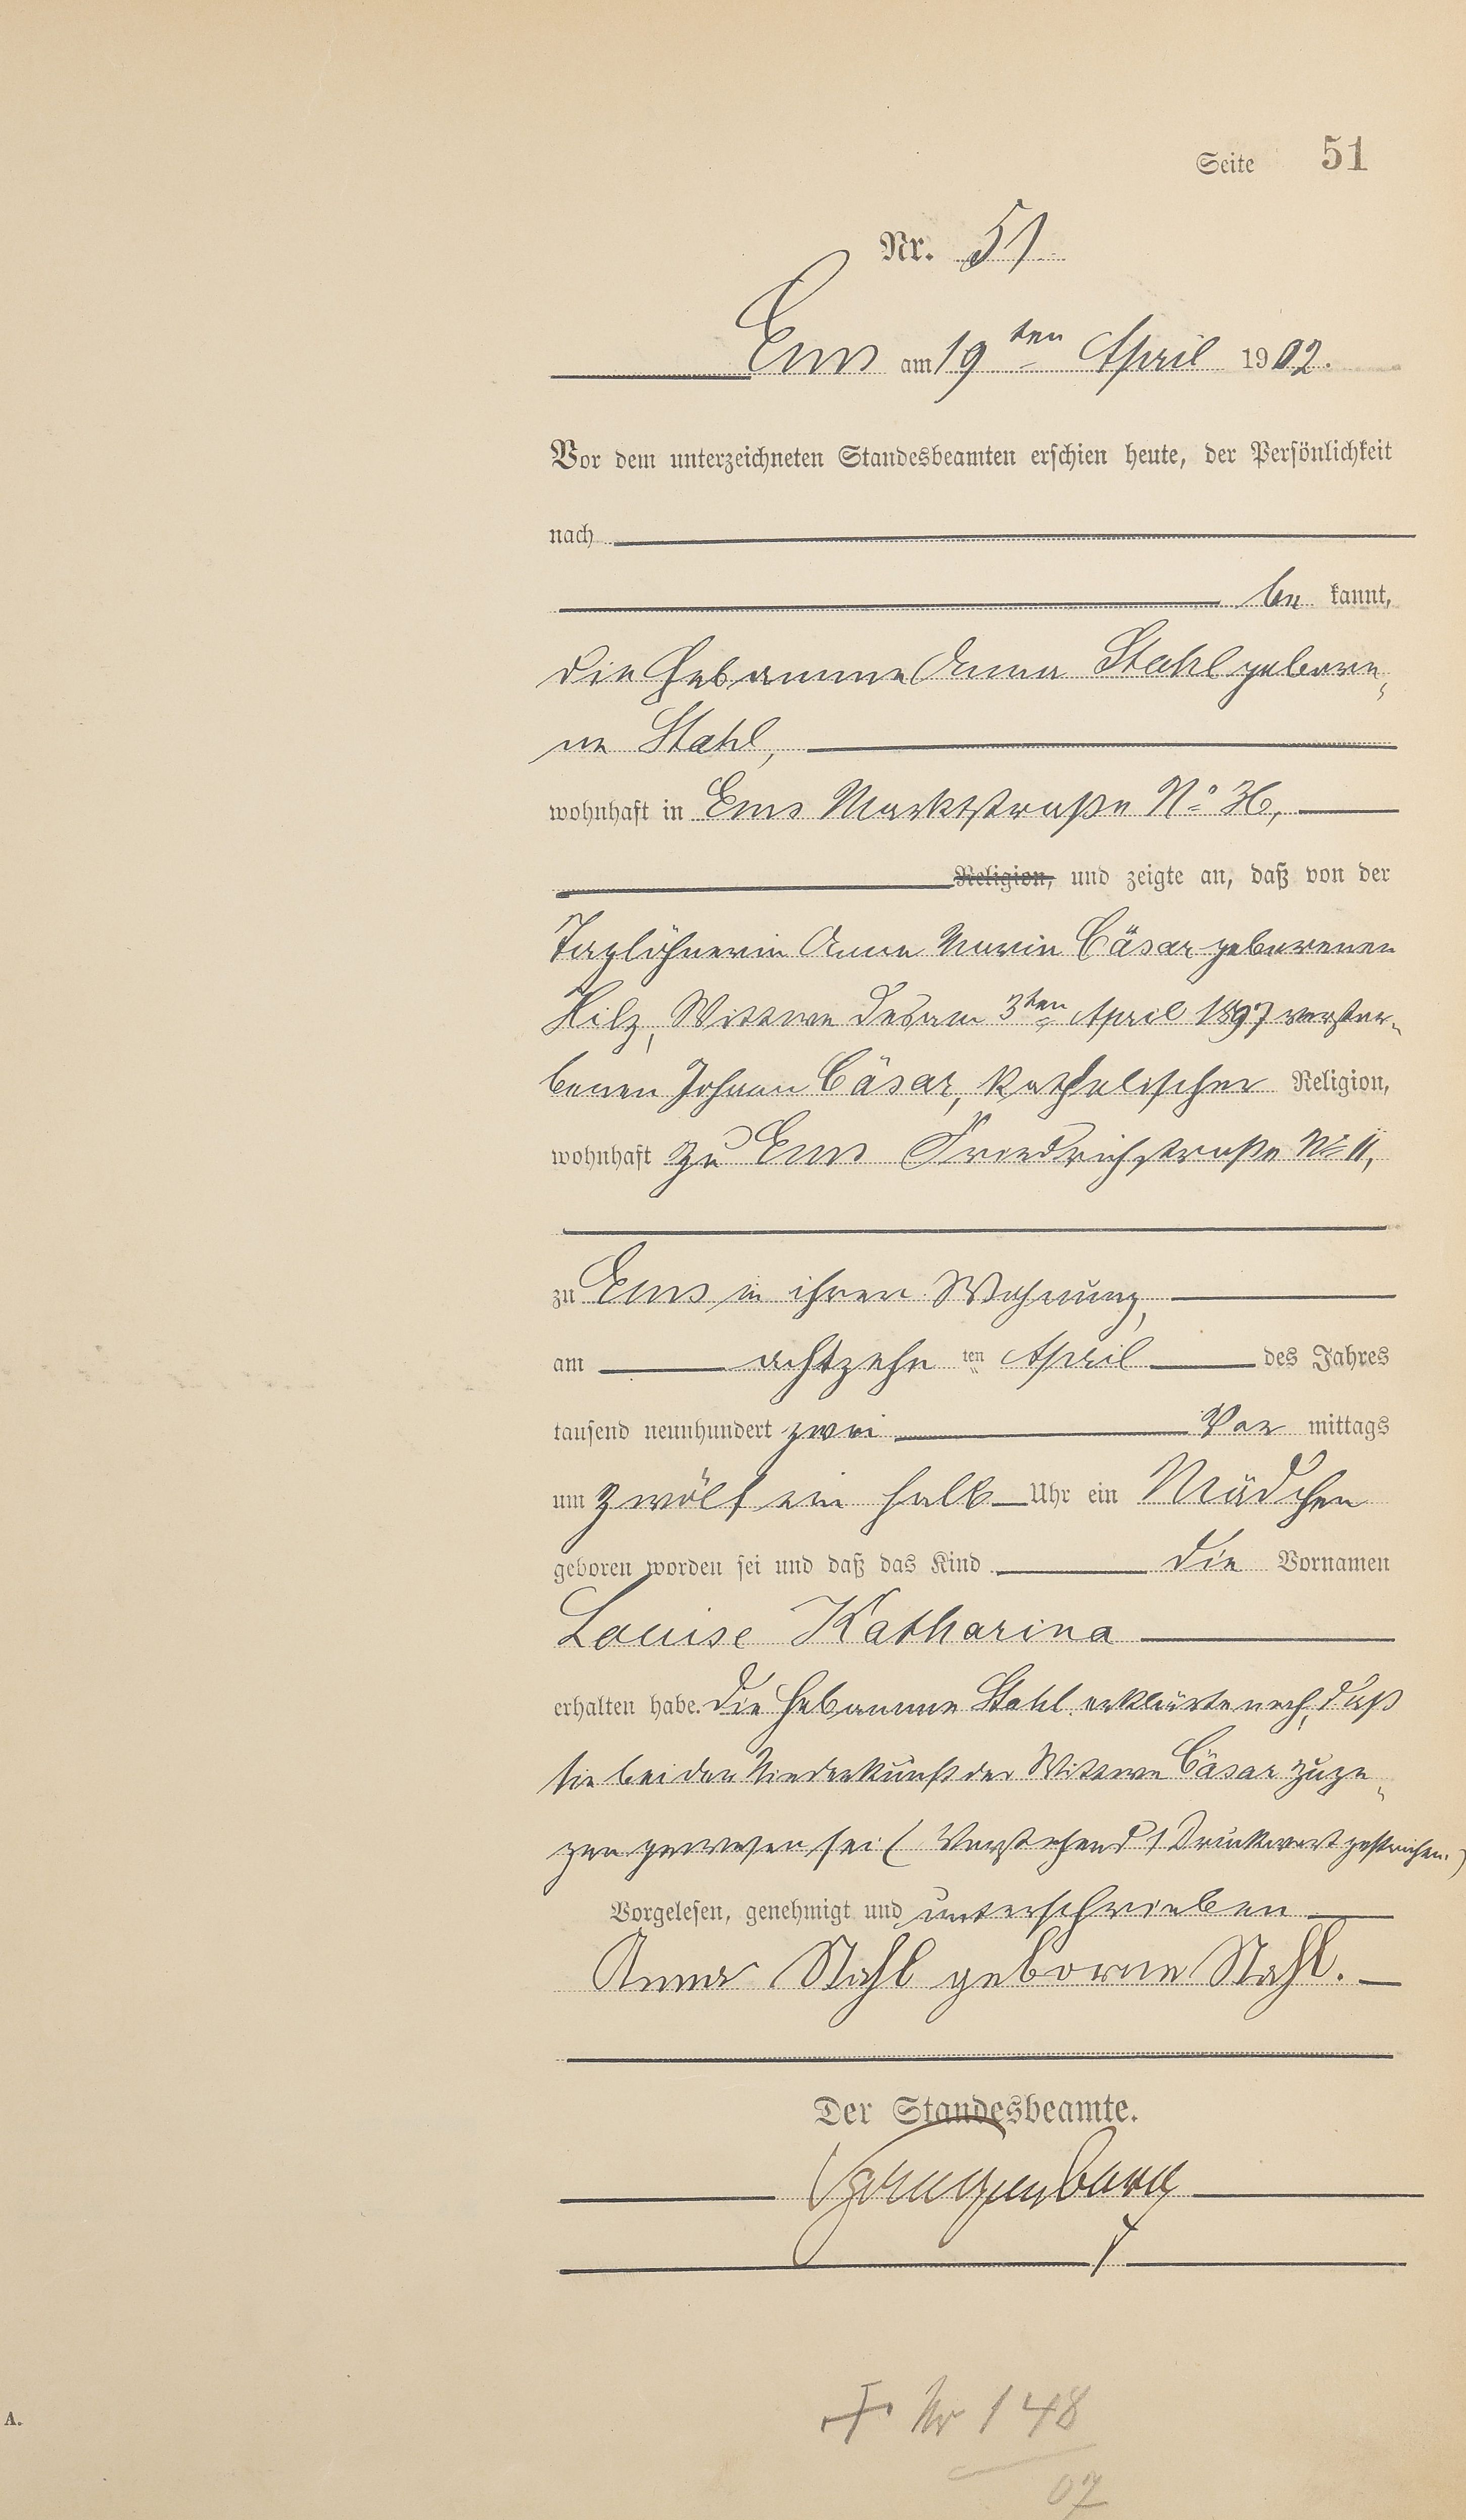 Seite 51
Nr. 51
Ems am 19ten April 1902.
Vor dem unterzeichneten Standesbeamten erschien heute, der Persönlichkeit
nach
be kannt,
die Hebamme Anna Stahl gebore-
ne Stahl,
wohnhaft in Ems Marktstraße No 36,
Religion, und zeigte an, daß von der
Taglöhnerin Anna Maria Cäsar geborenen
Hilz, Wittwe des am 3ten April 1897 verstor-
benen Johann Cäsar, katholischer Religion,
wohnhaft zu Ems Friedrichstraße No 11,
zu Ems in ihrer Wohnung,
am achtzehn ten April des Jahres
tausend neunhundert zwei Vor mittags
um zwölf ein halb Uhr ein Mädchen
geboren worden sei und daß das Kind die Vornamen
Louise Katharina
erhalten habe. Die Hebamme Stahl erklärte noch, daß
sie bei der Niederkunft der Wittwe Cäsar zuge-
gen gewesen sei (Vorstehend 1 Druckwort gestrichen.)
Vorgelesen, genehmigt und unterschrieben
Anna Stahl geborne Stahl.
Der Standesbeamte.
+ Nr 148
07
A.